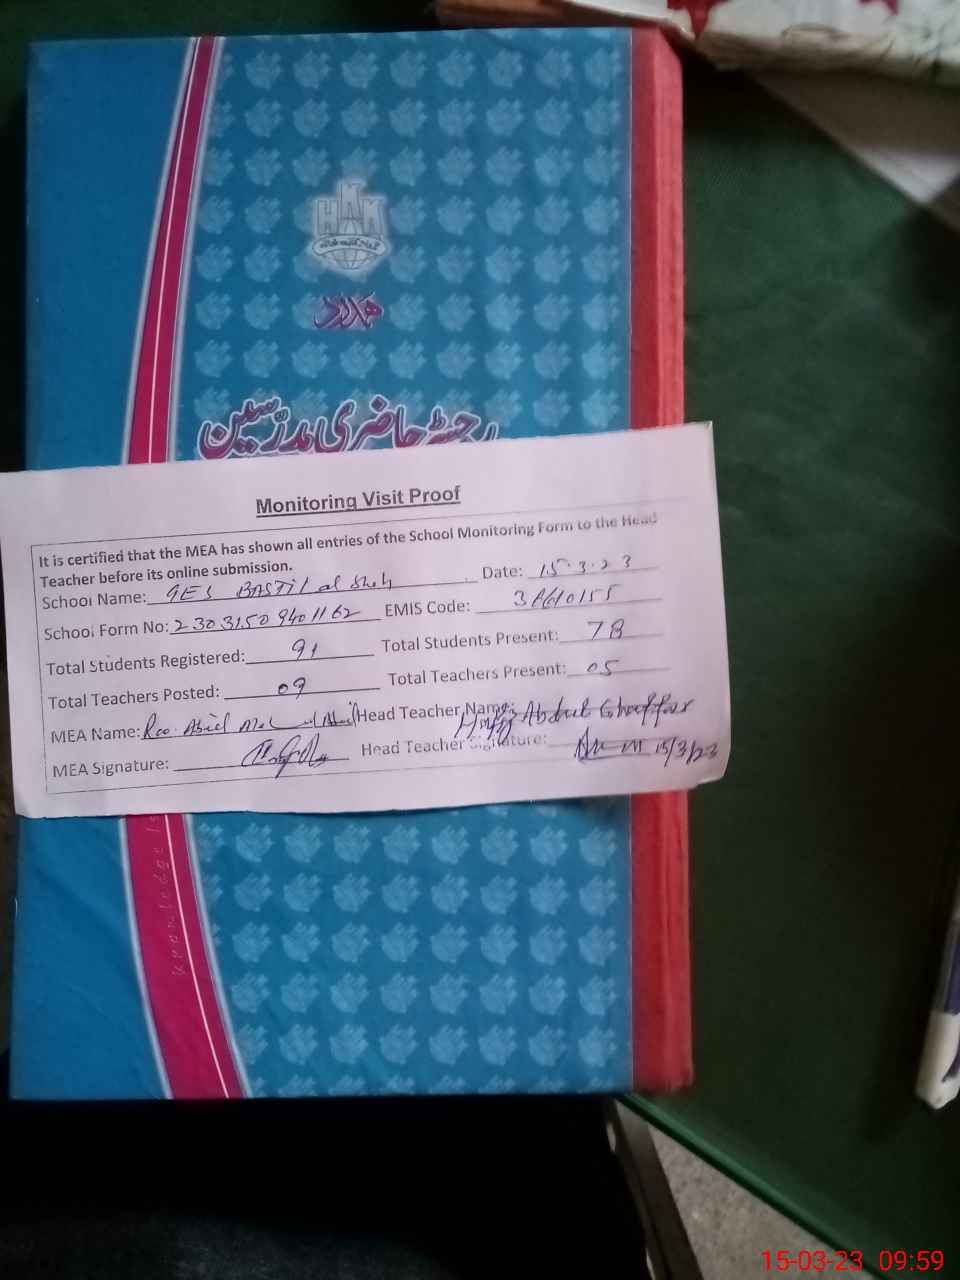 HKK
ہمدرد
رجسٹر حاضری مدرسین
Monitoring Visit Proof
It is certified that the MEA has shown all entries of the School Monitoring Form to the Head
Teacher before its online submission.
School Name: GES BASTI Date: 15.3.23
School Form No: 23031509401162 EMIS Code:
Total Students Registered: 91 Total Students Present: 78
Total Teachers Posted: 09 Total Teachers Present: 05
MEA Name: Rao Abid Head Teacher Name: Hafiz Abdul Ghaffar
MEA Signature: Head Teacher Signature: 15/3/23
15-03-23 09:59